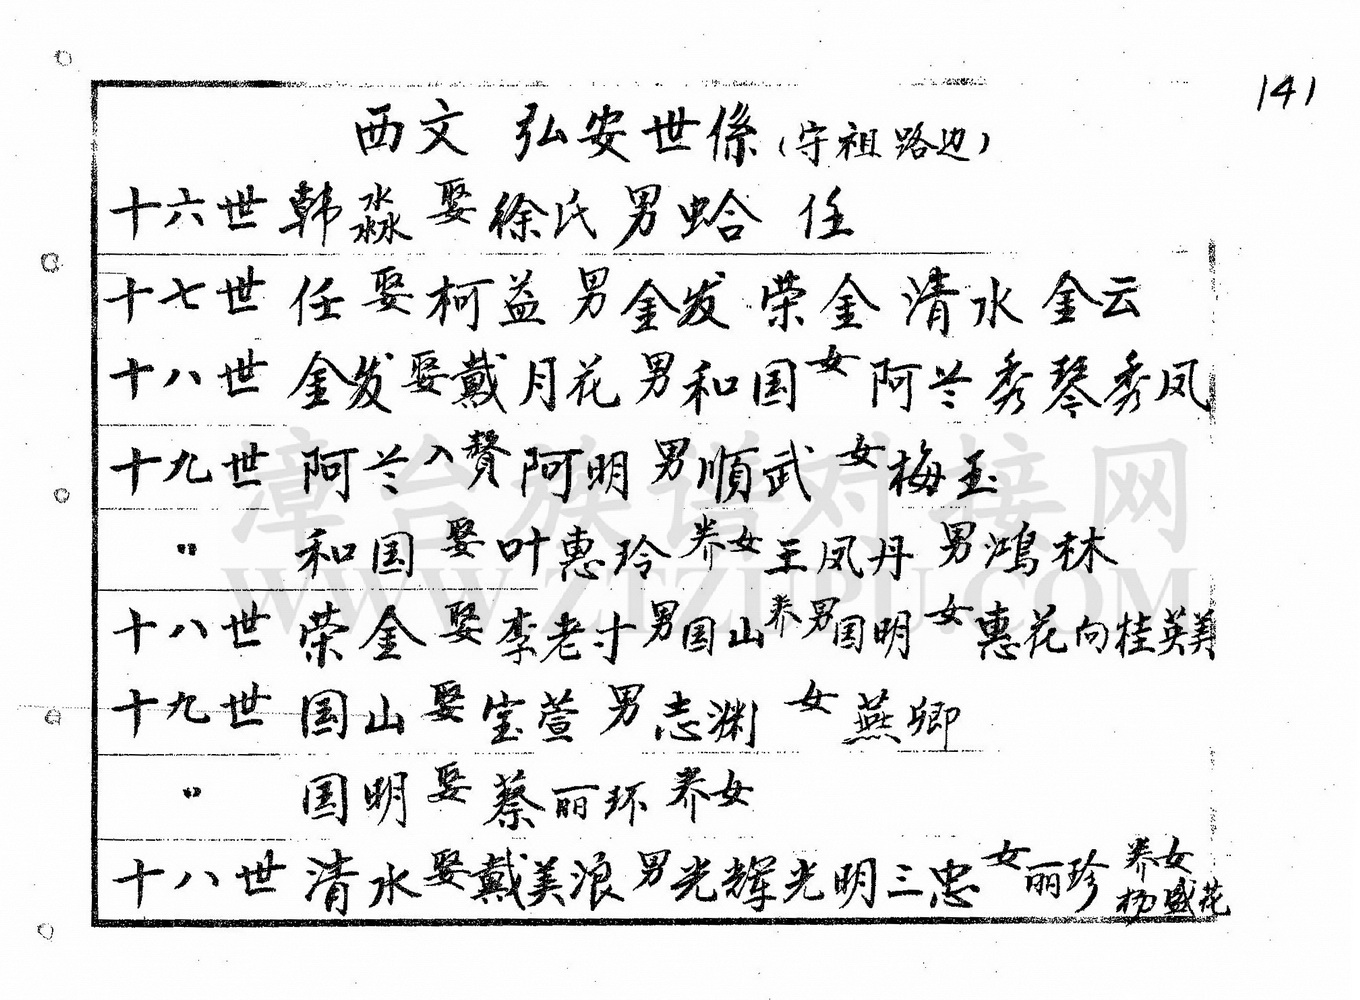 141
西文 弘安世係(守祖路边)
十六世 韩淼 娶徐氏 男蛤 任
十七世 任 娶柯益 男金发 荣金 清水 金云
十八世 金发娶戴月花男和国女阿兰秀琴秀凤
十九世 阿兰入赘阿明 男順武 女梅玉
〃 和国 娶叶惠玲养女王凤丹 男鸿林
十八世 荣金 娶李老寸男国山养男国明女惠花向桂英美
十九世 国山 娶宝萱 男志渊 女燕卿
〃 国明 娶蔡丽环 养女
十八世 清水 娶戴美浪 男光辉光明三忠 女丽珍 养女杨盛花
漳台族谱对接网
WWW.ZTZUPU.COM